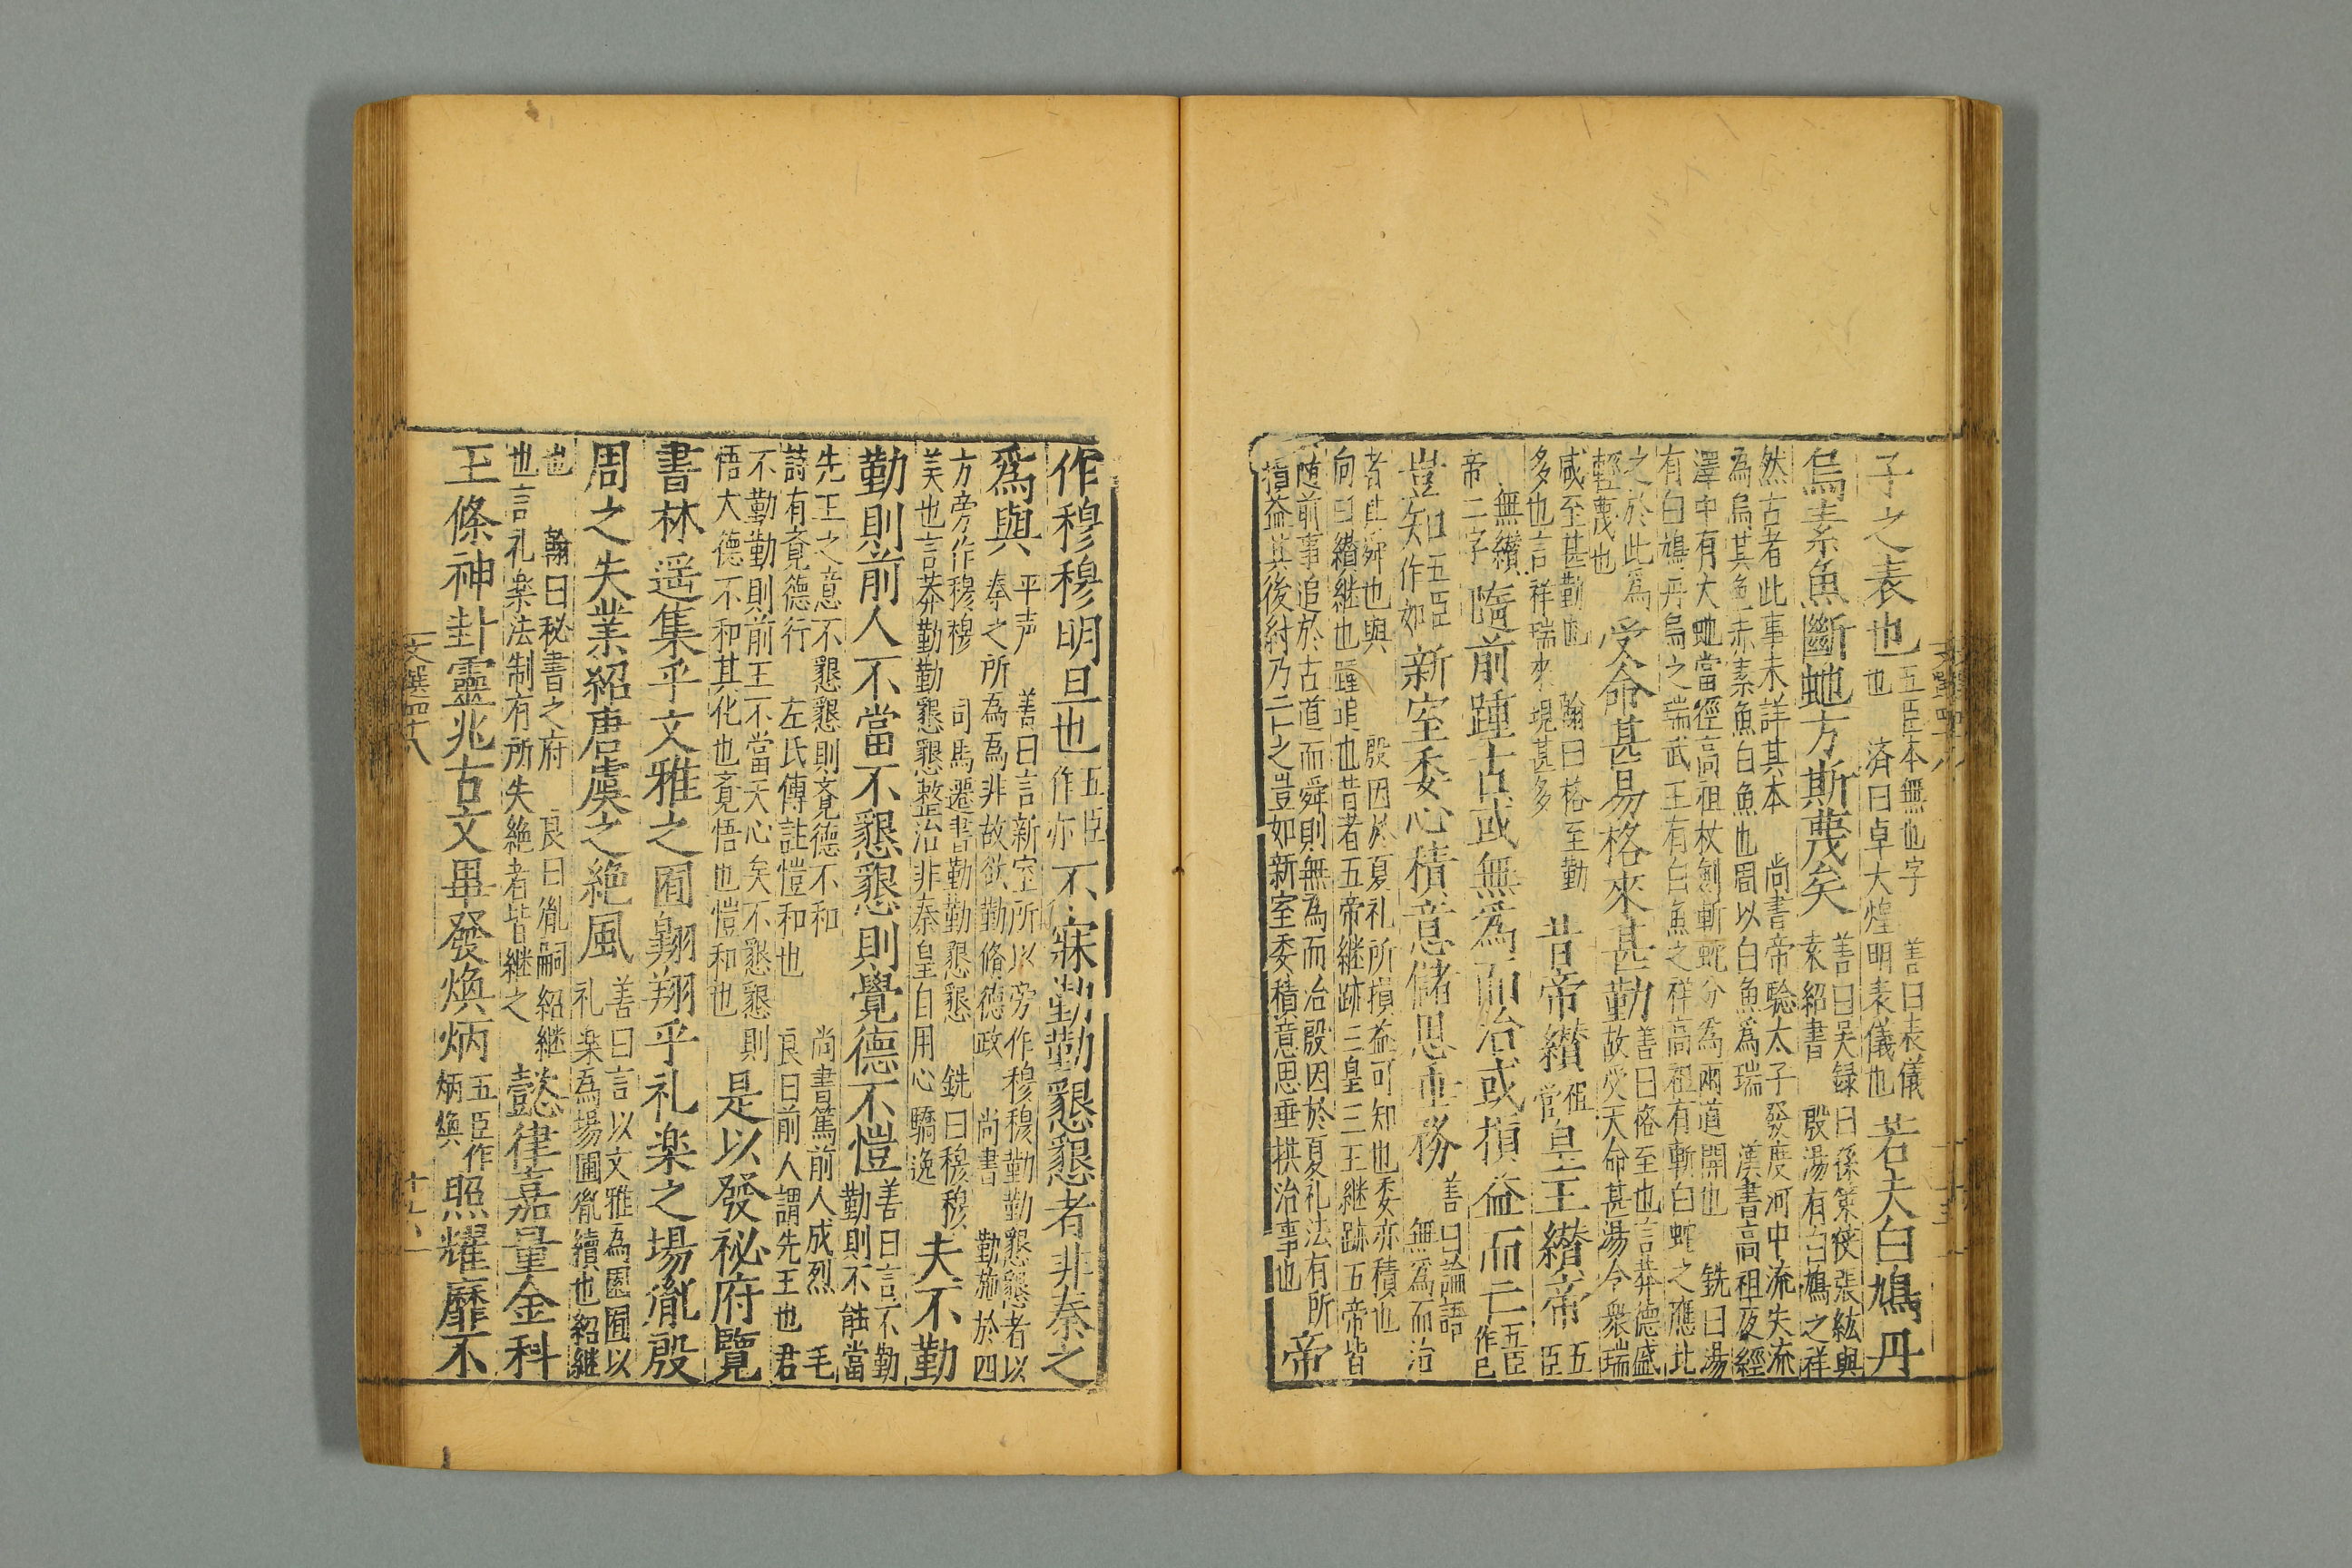 子之表也五臣本無也字也　善曰表儀
濟曰卓大煌明表儀也若夫白鳩丹
烏素魚斷虵方斯蔑矣善曰吳録曰孫策使張紘與
素紹書　殷湯有白鳩之祥
然古者此事未詳其本　尚書帝驗太子發度河中流失流
為烏其色赤素魚白魚也周以白魚為瑞　漢書高祖夜經
澤中有大虵當徑高祖杖劍斬蛇分為兩道開也　銑曰湯
有白鳩丹烏之瑞武王有白魚之祥高祖有斬白蛇之應比
之於此為
輕蔑也受命甚易格來甚勤善曰恪至也言莽德盛
故受天命甚湯今衆瑞
咸至甚勤也　翰曰格至勤
多也言祥瑞來現甚多昔帝纘皇王纘帝五
臣
無纘
帝二字隨前踵古或無爲而治或損益而亡五臣
作已
豈知五臣
作如新室委心積意儲思垂務善曰論語
無爲而治
者其舜也與　殷因於夏礼所損益可知也委亦積也
向曰纘継也踵追也昔者五帝継跡三皇三王継跡五帝皆
随前事追於古道而舜則無為而治殷因於夏礼法有所
損益其後紂乃亡之豈如新室委積意思垂拱治事也帝
作穆穆明旦也五臣
作亦不寐勤勤懇懇者非秦之
爲與平声　善曰言新室所以旁作穆穆勤勤懇懇者以
秦之所為為非故欲勤脩德政　尚書　勤施於四
方旁作穆穆　司馬遷書勤勤懇懇　銑曰穆穆
美也言莽勤勤懇懇整治非秦皇自用心驕逸夫不勤
勤則前人不當不懇懇則覺德不愷善曰言不勤
勤則不能當
先王之意不懇懇則覔德不和　尚書篤前人成烈　毛
詩有覔德行　左氏傳註愷和也　良曰前人謂先王也君
不勤勤則前王不當天心矣不懇懇則
悟大德不和其化也覔悟也愷和也是以發祕府覽
書林遥集乎文雅之囿翺翔乎礼楽之場胤殷
周之失業紹唐虞之絶風善曰言以文雅為園囿以
礼楽為場圃胤續也紹継
也　翰曰秘書之府　良曰胤嗣紹継
也言礼楽法制有所失絶者皆継之懿律嘉量金科
玉條神卦靈兆古文畢發煥炳五臣作
炳煥照耀靡不
文選四十八